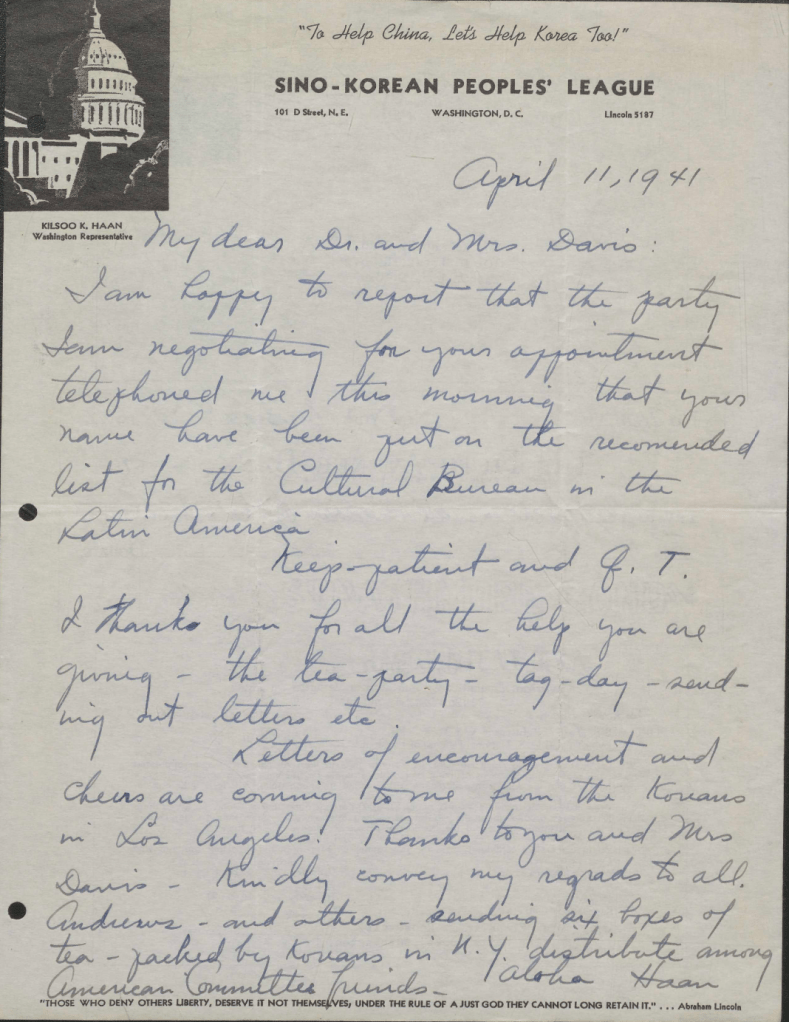 "To Help China, Let's Help Korea Too!"
SINO-KOREAN PEOPLES' LEAGUE
101 D Street, N. E. WASHINGTON, D. C. LIncoln 5187
April 11, 1941
KILSOO K. HAAN
Washington Representative
My dear Dr. and Mrs. Davis:
I am happy to report that the party
I am negotiating for your appointment
telephoned me this morning that your
name have been put on the recomended
list for the Cultural Bureau in the
Latin America
Keep-patient and Q. T.
I thanks you for all the help you are
giving - the tea-party - tag-day - send-
ing out letters etc.
Letters of encouragement and
cheers are coming to me from the Koreans
in Los Angeles. Thanks to you and Mrs
Davis - Kindly convey my regrads to all.
Andrews - and others - sending six boxes of
tea - packed by Koreans in N.Y. distribute among
American Committee friends - Aloha Haan
"THOSE WHO DENY OTHERS LIBERTY, DESERVE IT NOT THEMSELVES; UNDER THE RULE OF A JUST GOD THEY CANNOT LONG RETAIN IT." ... Abraham Lincoln